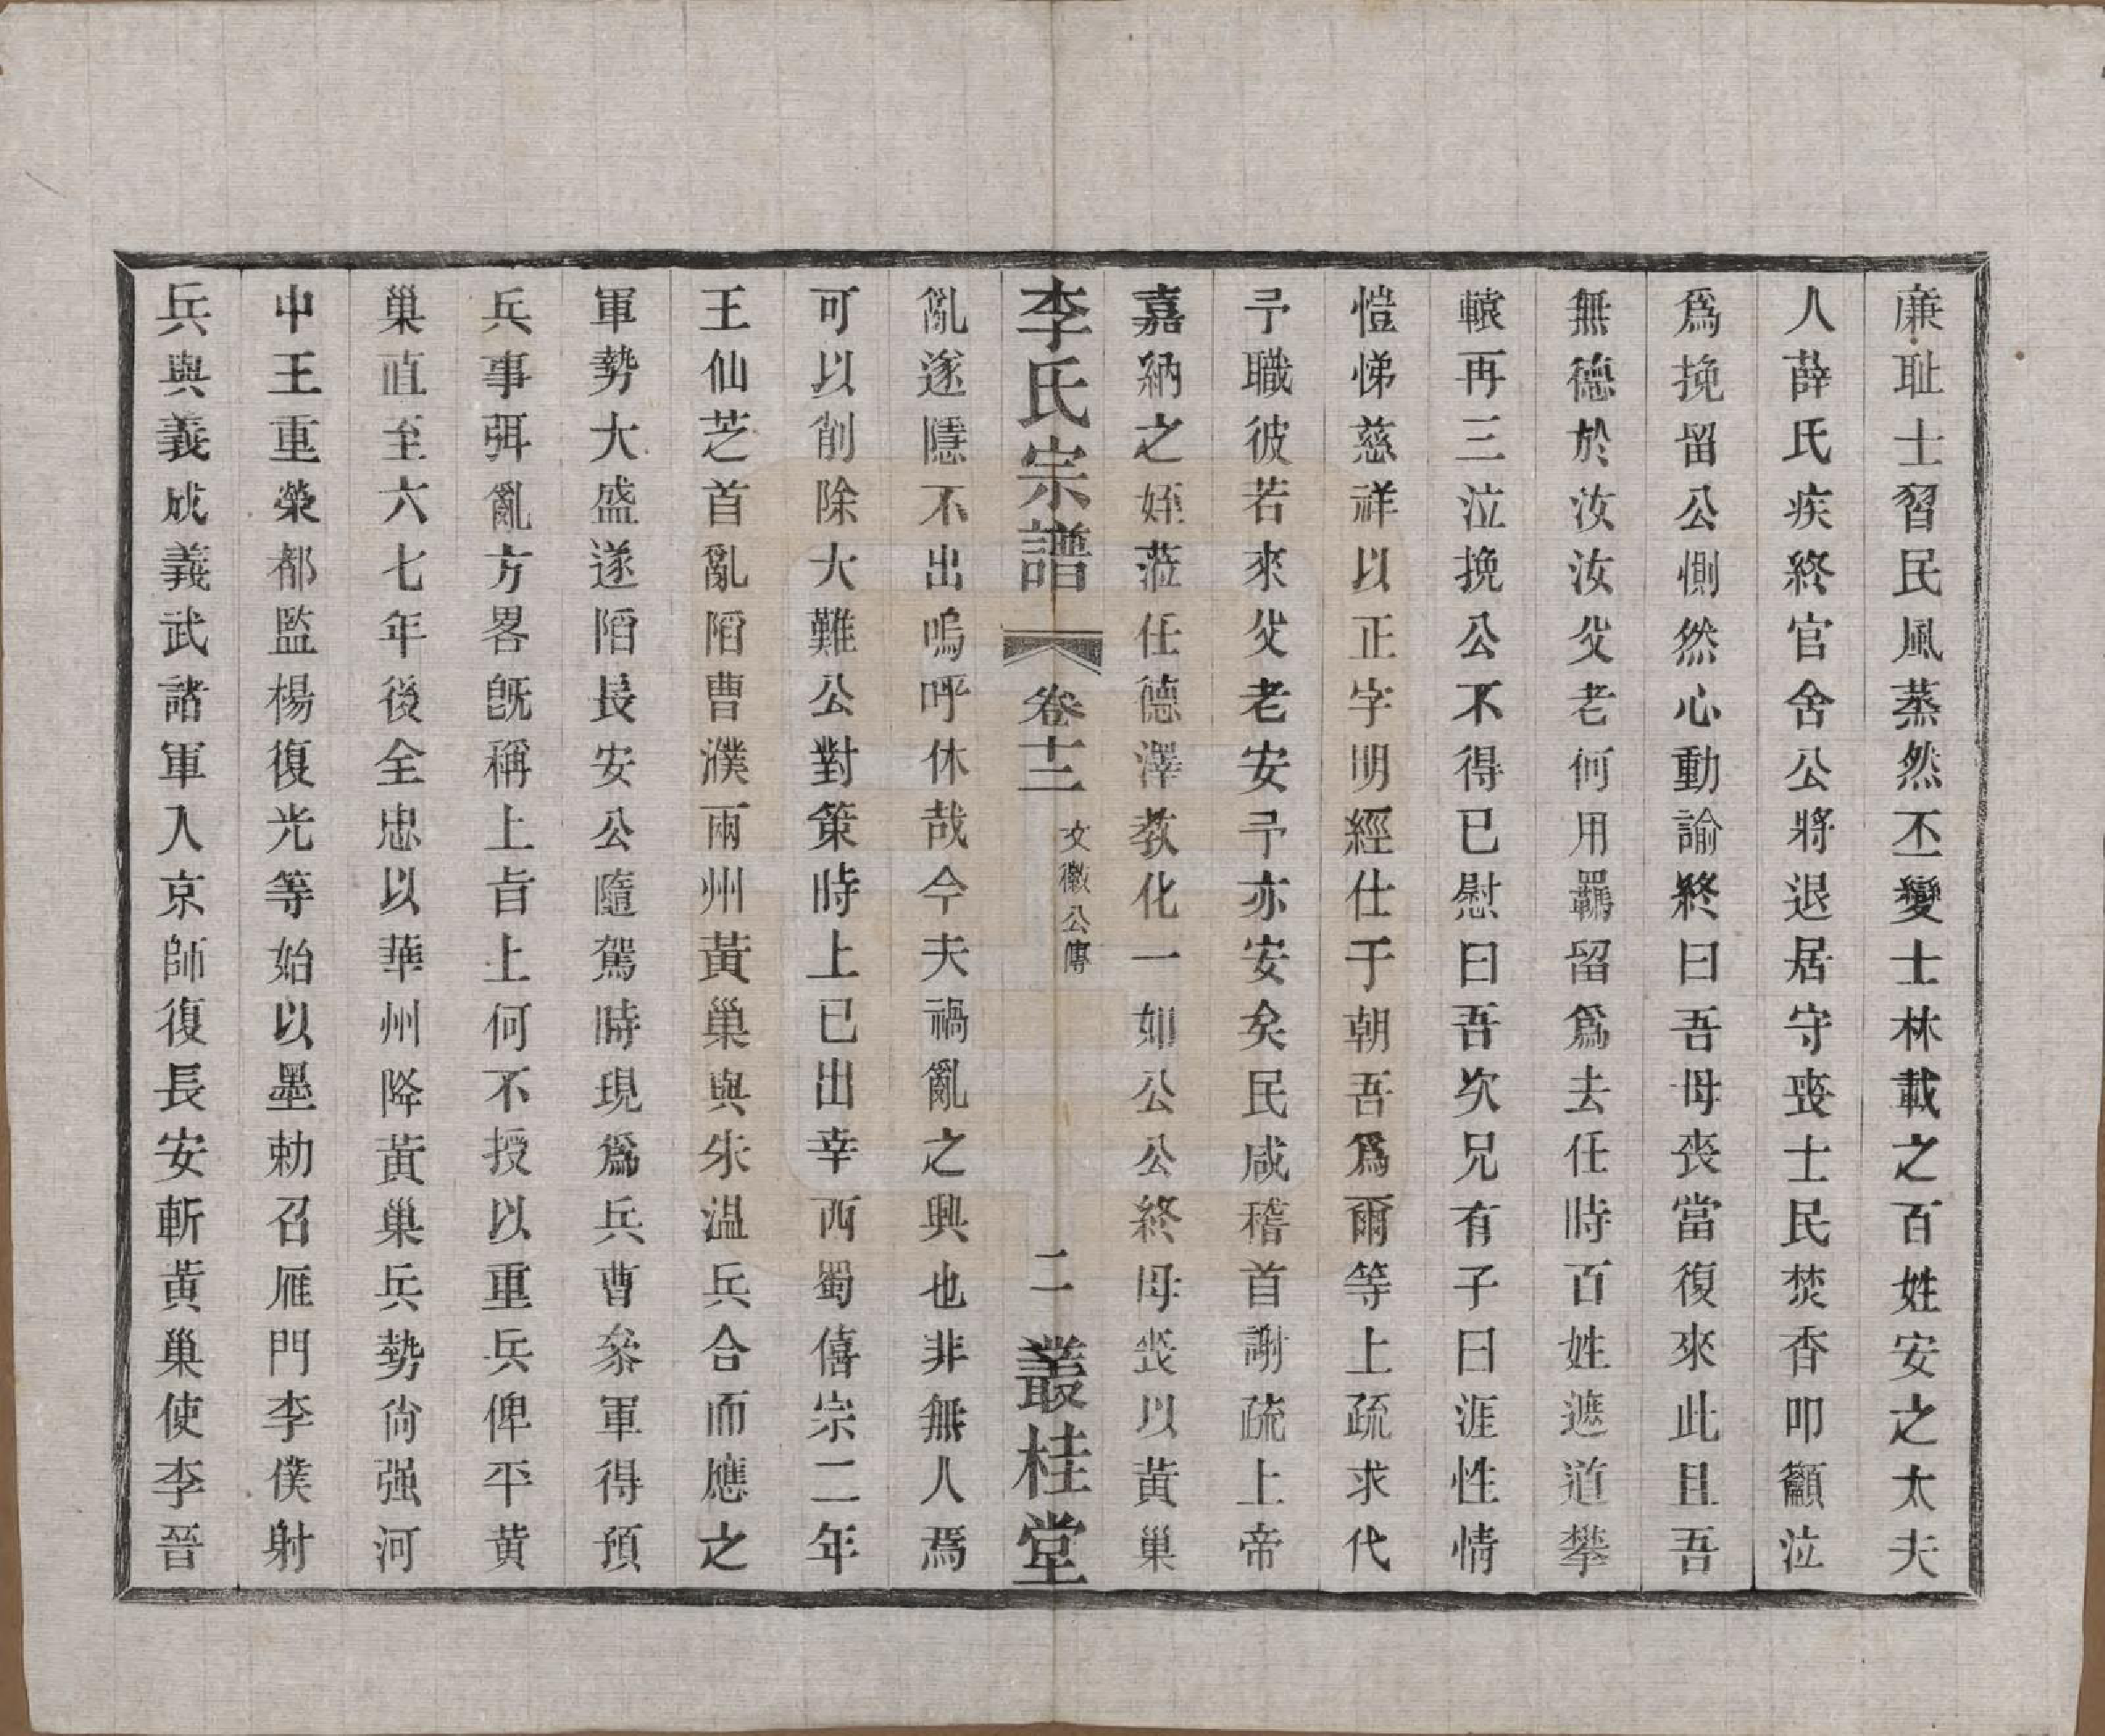 廉耻士習民風蒸然丕變士林載之百姓安之太夫
人薛氏疾終官舍公將退居守喪士民焚香叩籲泣
爲挽留公惻然心動諭終曰吾母喪當復來此且吾
無德於汝汝父老何用羈留爲去任時百姓遮道攀
轅再三泣挽公不得已慰曰吾次兄有子曰涯性情
愷悌慈祥以正字明經仕于朝吾爲爾等上疏求代
予職彼若來父老安予亦安矣民咸稽首謝疏上帝
嘉納之姪蒞任德澤教化一如公公終母喪以黃巢
李氏宗譜 卷十二 文徽公傳 二 叢桂堂
亂遂隱不出嗚呼休哉今夫禍亂之興也非無人焉
可以削除大難公對策時上已出幸西蜀僖宗二年
王仙芝首亂陷曹濮兩州黃巢與朱温兵合而應之
軍勢大盛遂陷長安公隨駕時現爲兵曹叅軍得預
兵事弭亂方畧旣稱上旨上何不授以重兵俾平黄
巢直至六七年後全忠以華州降黃巢兵勢尙强河
中王重榮都監楊復光等始以墨勅召雁門李僕射
兵與義成義武諸軍入京師復長安斬黃巢使李晉